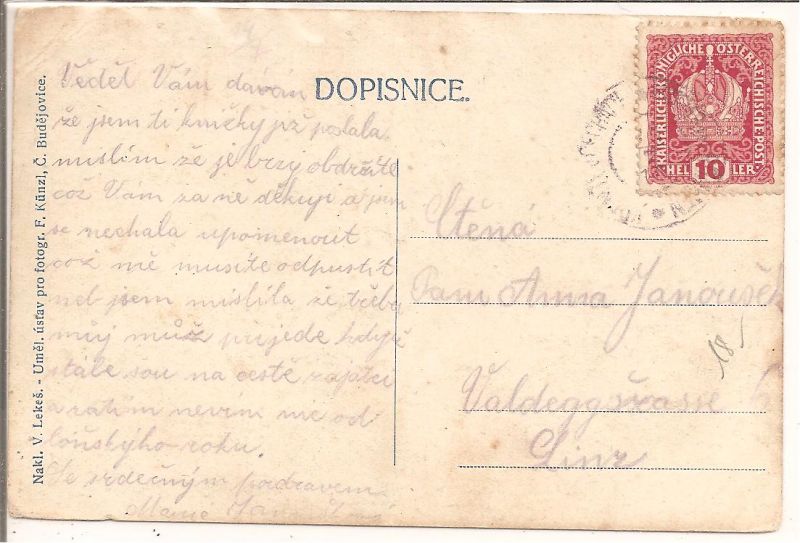 DOPISNICE.
Nakl. V. Lekeš. - Uměl. ústav pro fotogr. F. Künzl, Č. Budějovice.
KAISERLICHE KÖNIGLICHE ÖSTERREICHISCHE POST
HEL 10 LER
Věděl Vám dávám
že jsem ti poslala
muslím že je brzy obdržíte
což Vám za ně děkuji a jsem
se nechala upomenout
což mě musíte odpustit
neb jsem mislila že třeba
můj muž přijede když
stále sou na cestě zajatci
a zatím nevím nic od
loňskýho roku.
Se srdečným pozdravem
Ctěná
Paní Anna Janoušek
Linz
18